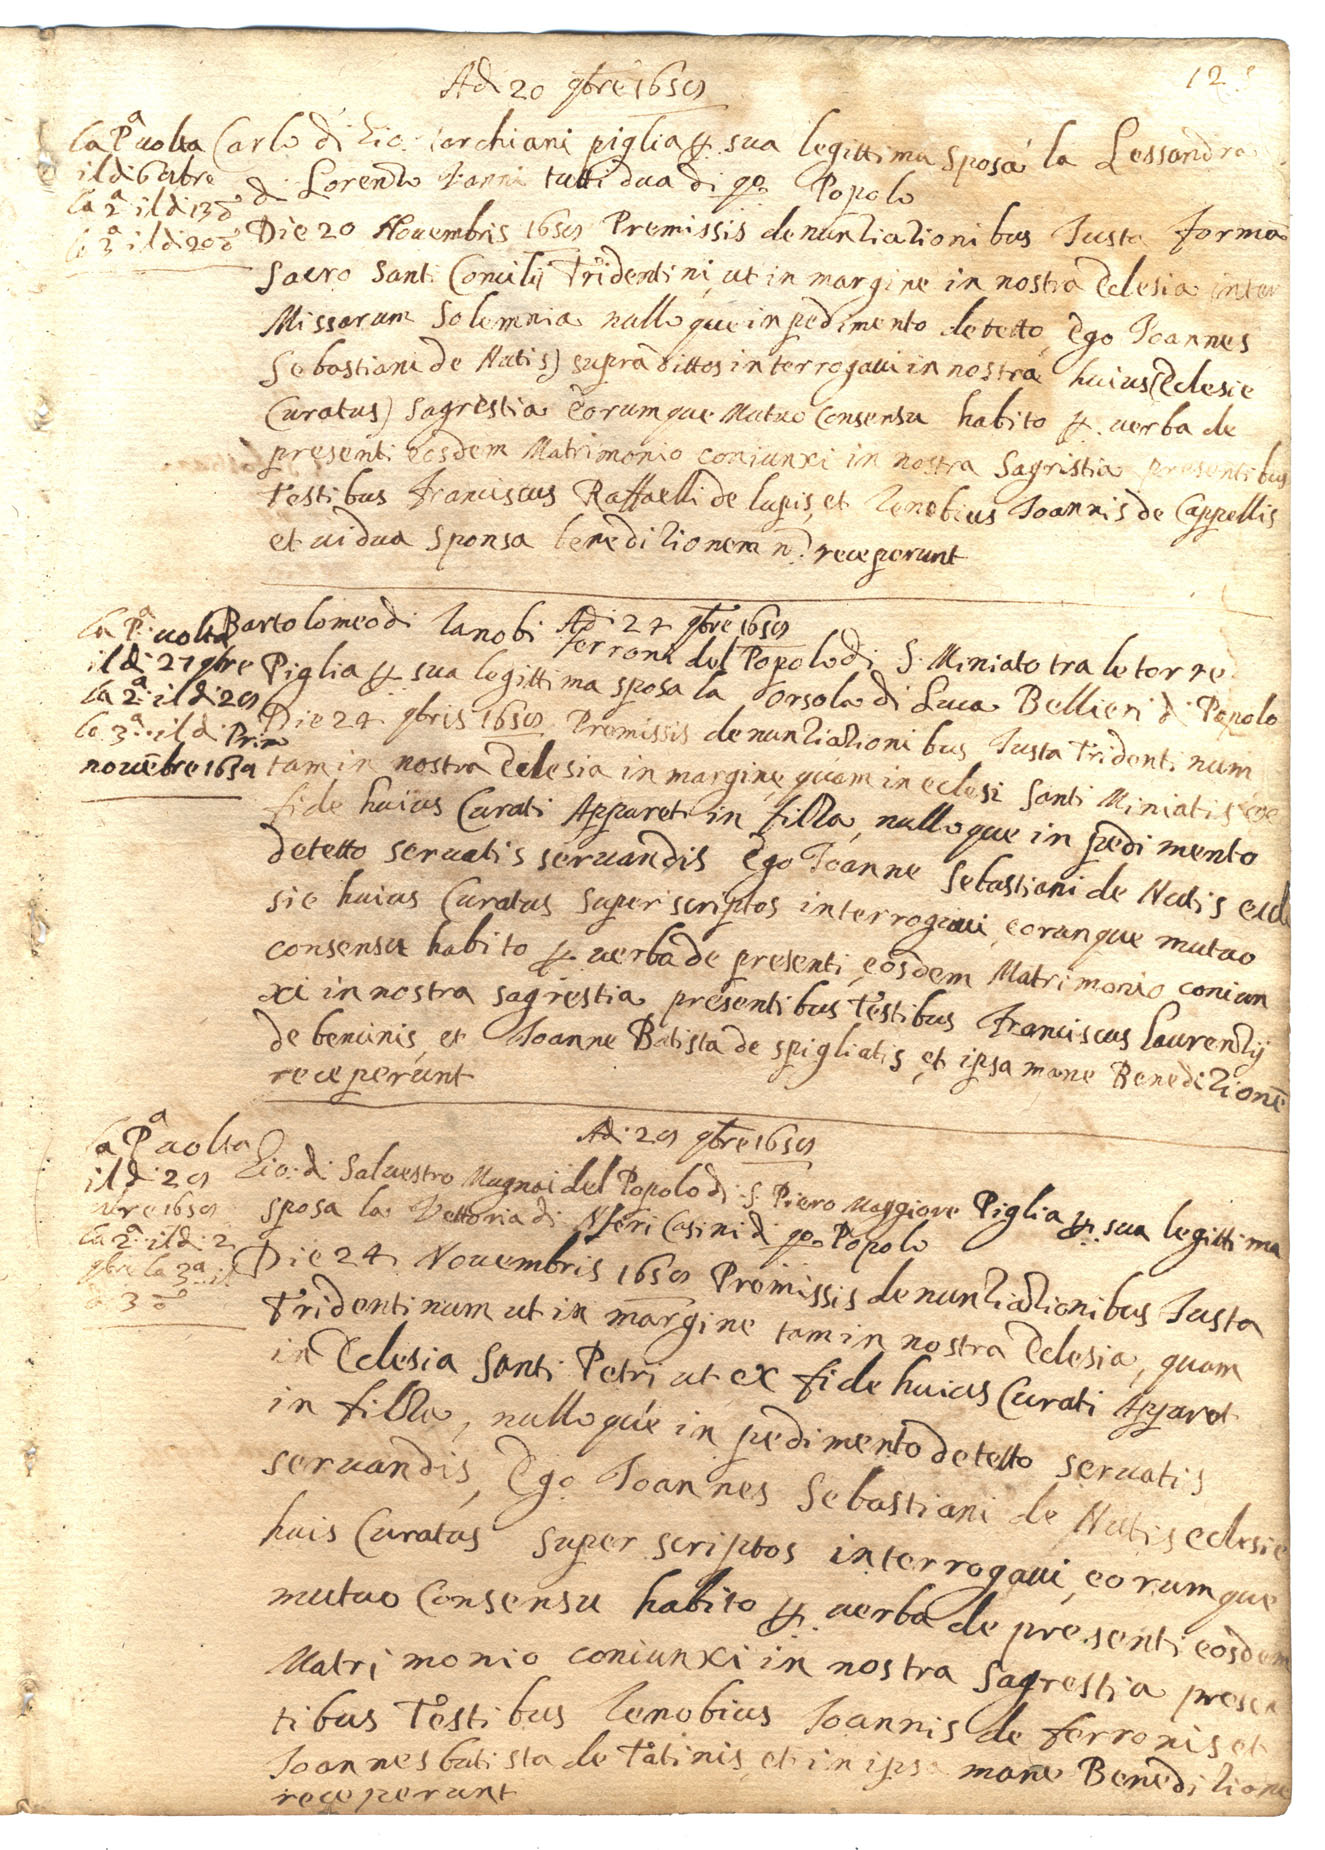 12
Adi 20 9bre 1659
la Pa uolta
il di 6 9bre
la 2a il di 13 do
la 3a il di 20 do
Carlo di Gio: piglia p. sua legittima sposa la Lessandra
di Lorenzo Vanni tutti dua di qo. Popolo
Die 20 Nouembris 1659 Premissis denunziazionibus Iusta forma
Sacro Santi Concilij Tridentini, ut in margine in nostra Eclesia inter
Missarum Solemnia nulloque inpedimento detetto, Ego Ioannes
Sebastiani de Natis) supradittos interrogaui in nostra huius (Eclesie
Curatus) Sagrestia Eorumque Mutuo Consensu habito p. uerba de
presenti eosdem Matrimonio coniunxi in nostra Sagristia presentibus
Testibus Franciscus Raffaelli de lupis, et Zenobius Ioannis de Cappellis
et uidua Sponsa benedizionem n. receperunt
Adi 24 9bre 1659
la Pa uolta
il di 27 9bre
la 2a il di 29
la 3a il di Prim
nouēbre 1659
Bartolomeo di Zanobi ferroni del Popolo di S. Miniato tra le torre
Piglia p. sua legittima sposa la Orsola di Luca Bellieri di Popolo
Die 24 9bris 1659 Premissis denunziazionibus Iusta Tridentinum
tam in nostra Eclesia in margine, quam in eclesi Santi Miniatis ex
fide huius Curati Apparet in filza, nulloque in pedimento
detetto seruatis seruandis Ego Ioanne Sebastiani de Natis ecle
sie huius Curatus superscriptos interrogaui, eorunque mutuo
consensu habito p. uerba de presenti, eosdem Matrimonio coniun
xi in nostra sagrestia presentibus Testibus Franciscus Laurenzij
de bencinis, et Ioanne Batista de spigliatis, et ipsa mane Benedizionē
receperunt
Adi 29 9bre 1659
la Pa uolta
il di 29
9bre 1659
la 2a il di 2
9bre la 3a il
di 3 do
Gio: di Saluestro Mugnai del Popolo di S. Piero Maggiore Piglia p. sua legittima
sposa la Vettoria di Neri Casini di qo. Popolo
Die 24 Nouembris 1659 Premissis denunziazionibus Iusta
Tridentinum ut in margine tam in nostra Eclesia, quam
in Eclesia Santi Petri ut ex fide huius Curati Apparet
in filza, nulloque in pedimento detetto seruatis
seruandis, Ego Ioannes Sebastiani de Natis eclesie
huis Curatus superscriptos interrogaui, eorumque
mutuo Consensu habito p. uerba de presenti eosdem
Matrimonio coniunxi in nostra Sagrestia presen
tibus Testibus Zenobius Ioannis de ferronis et
Ioannes batista de Tatinis, et in ipsa mane Benedizione
receperunt